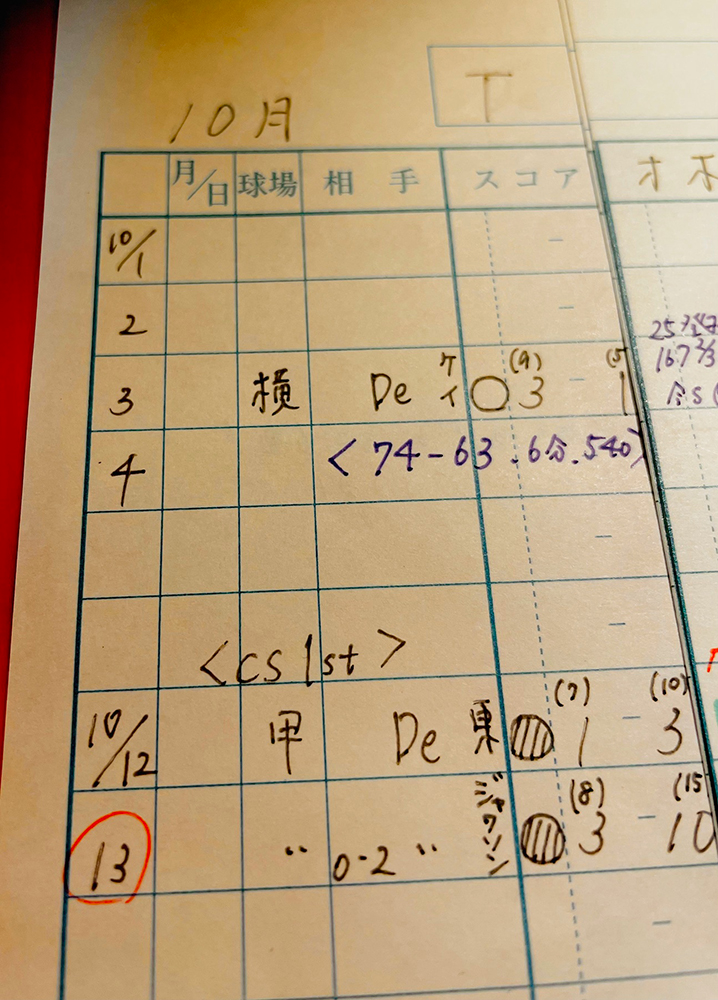 10月 T
月/日 球場 相手 スコア オホ
10/1 -
2 - 25
3 横 De ケイ ○ (9) 3 - 1 (5 167 2/3
4 <74-63.6分.540>
-
-
<CS 1st>
10/12 甲 De 東 (7) 1 - (10) 3
13 〃 0-2 〃 ジャクソン (8) 3 - (15 10
-